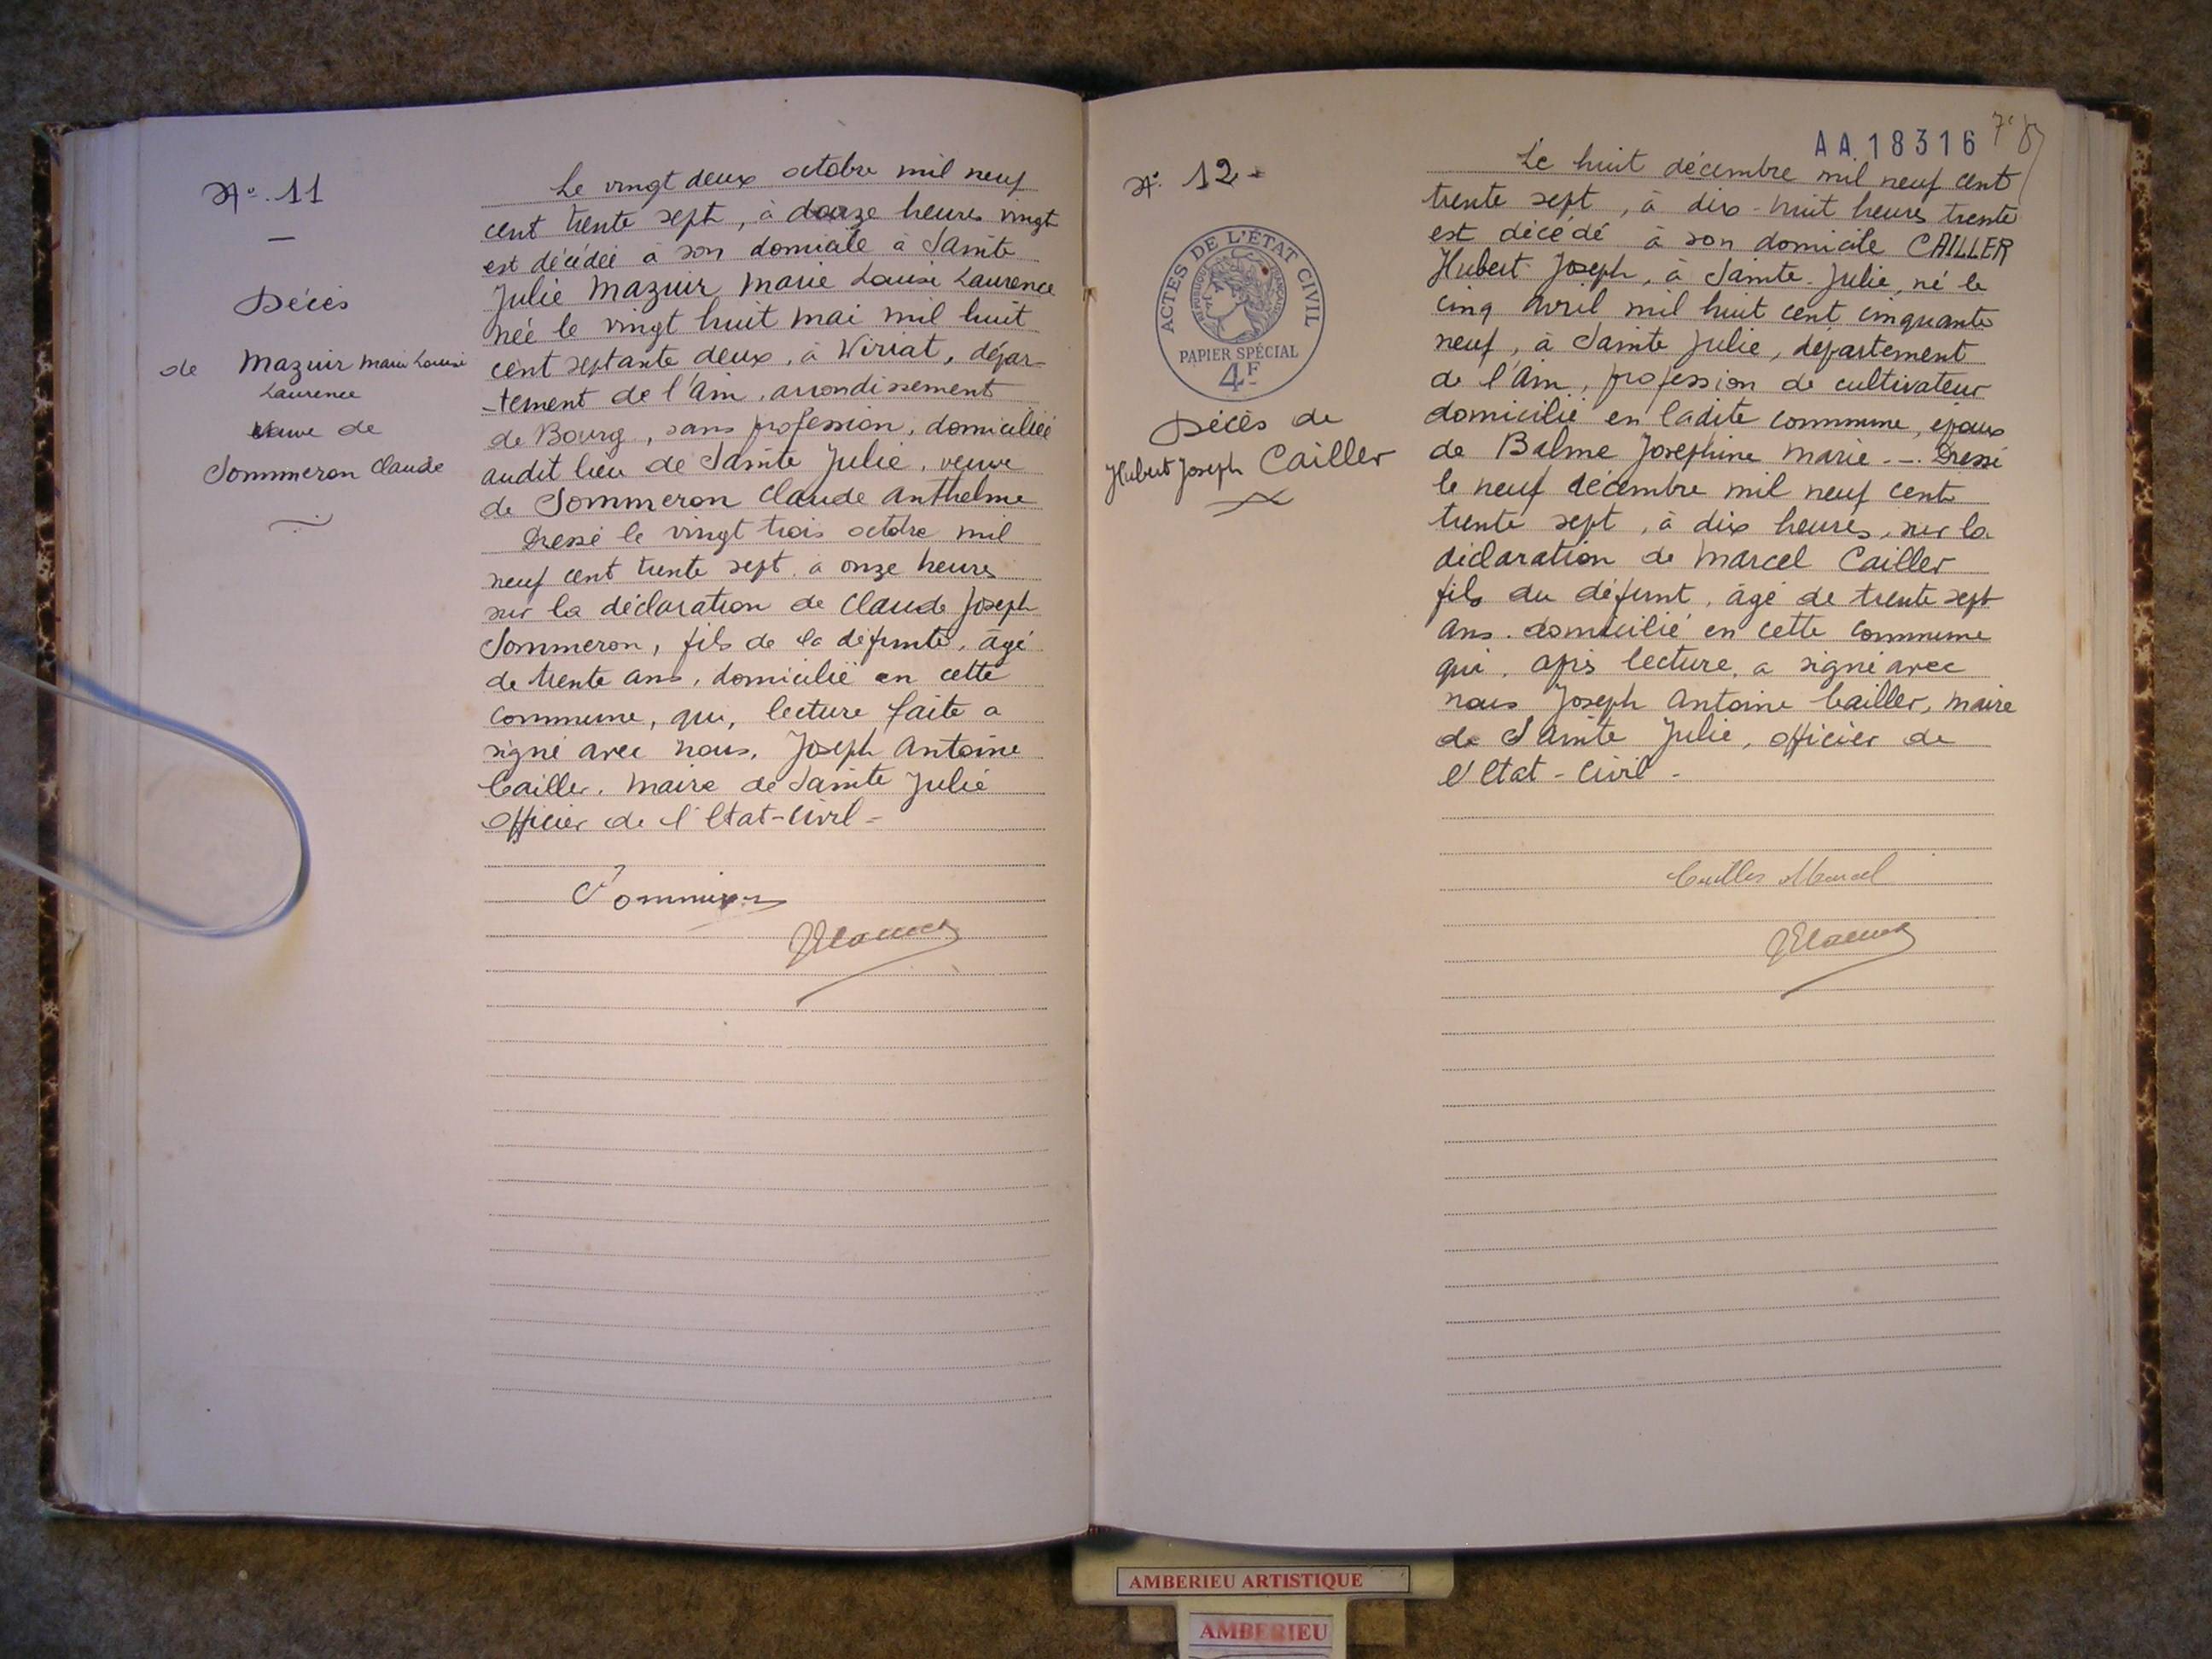 N°. 11
Décès
de Mazuir Marie Louise
Laurence
veuve de
Sommeron Claude
Le vingt deux octobre mil neuf
cent trente sept, à douze heures vingt
est décédée à son domicile à Sainte
Julie Mazuir Marie Louise Laurence
née le vingt huit mai mil huit
cent septante deux, à Viriat, dépar-
-tement de l'Ain, arrondissement
de Bourg, sans profession, domiciliée
audit lieu de Sainte Julie, veuve
de Sommeron Claude Anthelme
Dressé le vingt trois octobre mil
neuf cent trente sept, à onze heures
sur la déclaration de Claude Joseph
Sommeron, fils de la défunte, âgé
de trente ans, domicilié en cette
commune, qui, lecture faite a
signé avec nous, Joseph Antoine
Cailler, maire de Sainte Julie
officier de l'Etat-Civil =
Sommeron
AA18316
N°. 12 -
ACTES DE L'ÉTAT CIVIL
RÉPUBLIQUE FRANÇAISE
PAPIER SPÉCIAL
4F
Décès de
Hubert Joseph Cailler
Le huit décembre mil neuf cent
trente sept, à dix-huit heures trente
est décédé à son domicile CAILLER
Hubert Joseph, à Sainte-Julie, né le
cinq avril mil huit cent cinquante
neuf, à Sainte Julie, département
de l'Ain, profession de cultivateur
domicilié en ladite commune, époux
de Balme Joséphine Marie. -. Dressé
le neuf décembre mil neuf cent
trente sept, à dix heures, sur la
déclaration de Marcel Cailler
fils du défunt, âgé de trente sept
ans. domicilié en cette commune
qui, après lecture, a signé avec
nous Joseph Antoine Cailler, maire
de Sainte Julie, officier de
l'Etat-Civil -
Cailler Marcel
AMBERIEU ARTISTIQUE
AMBERIEU